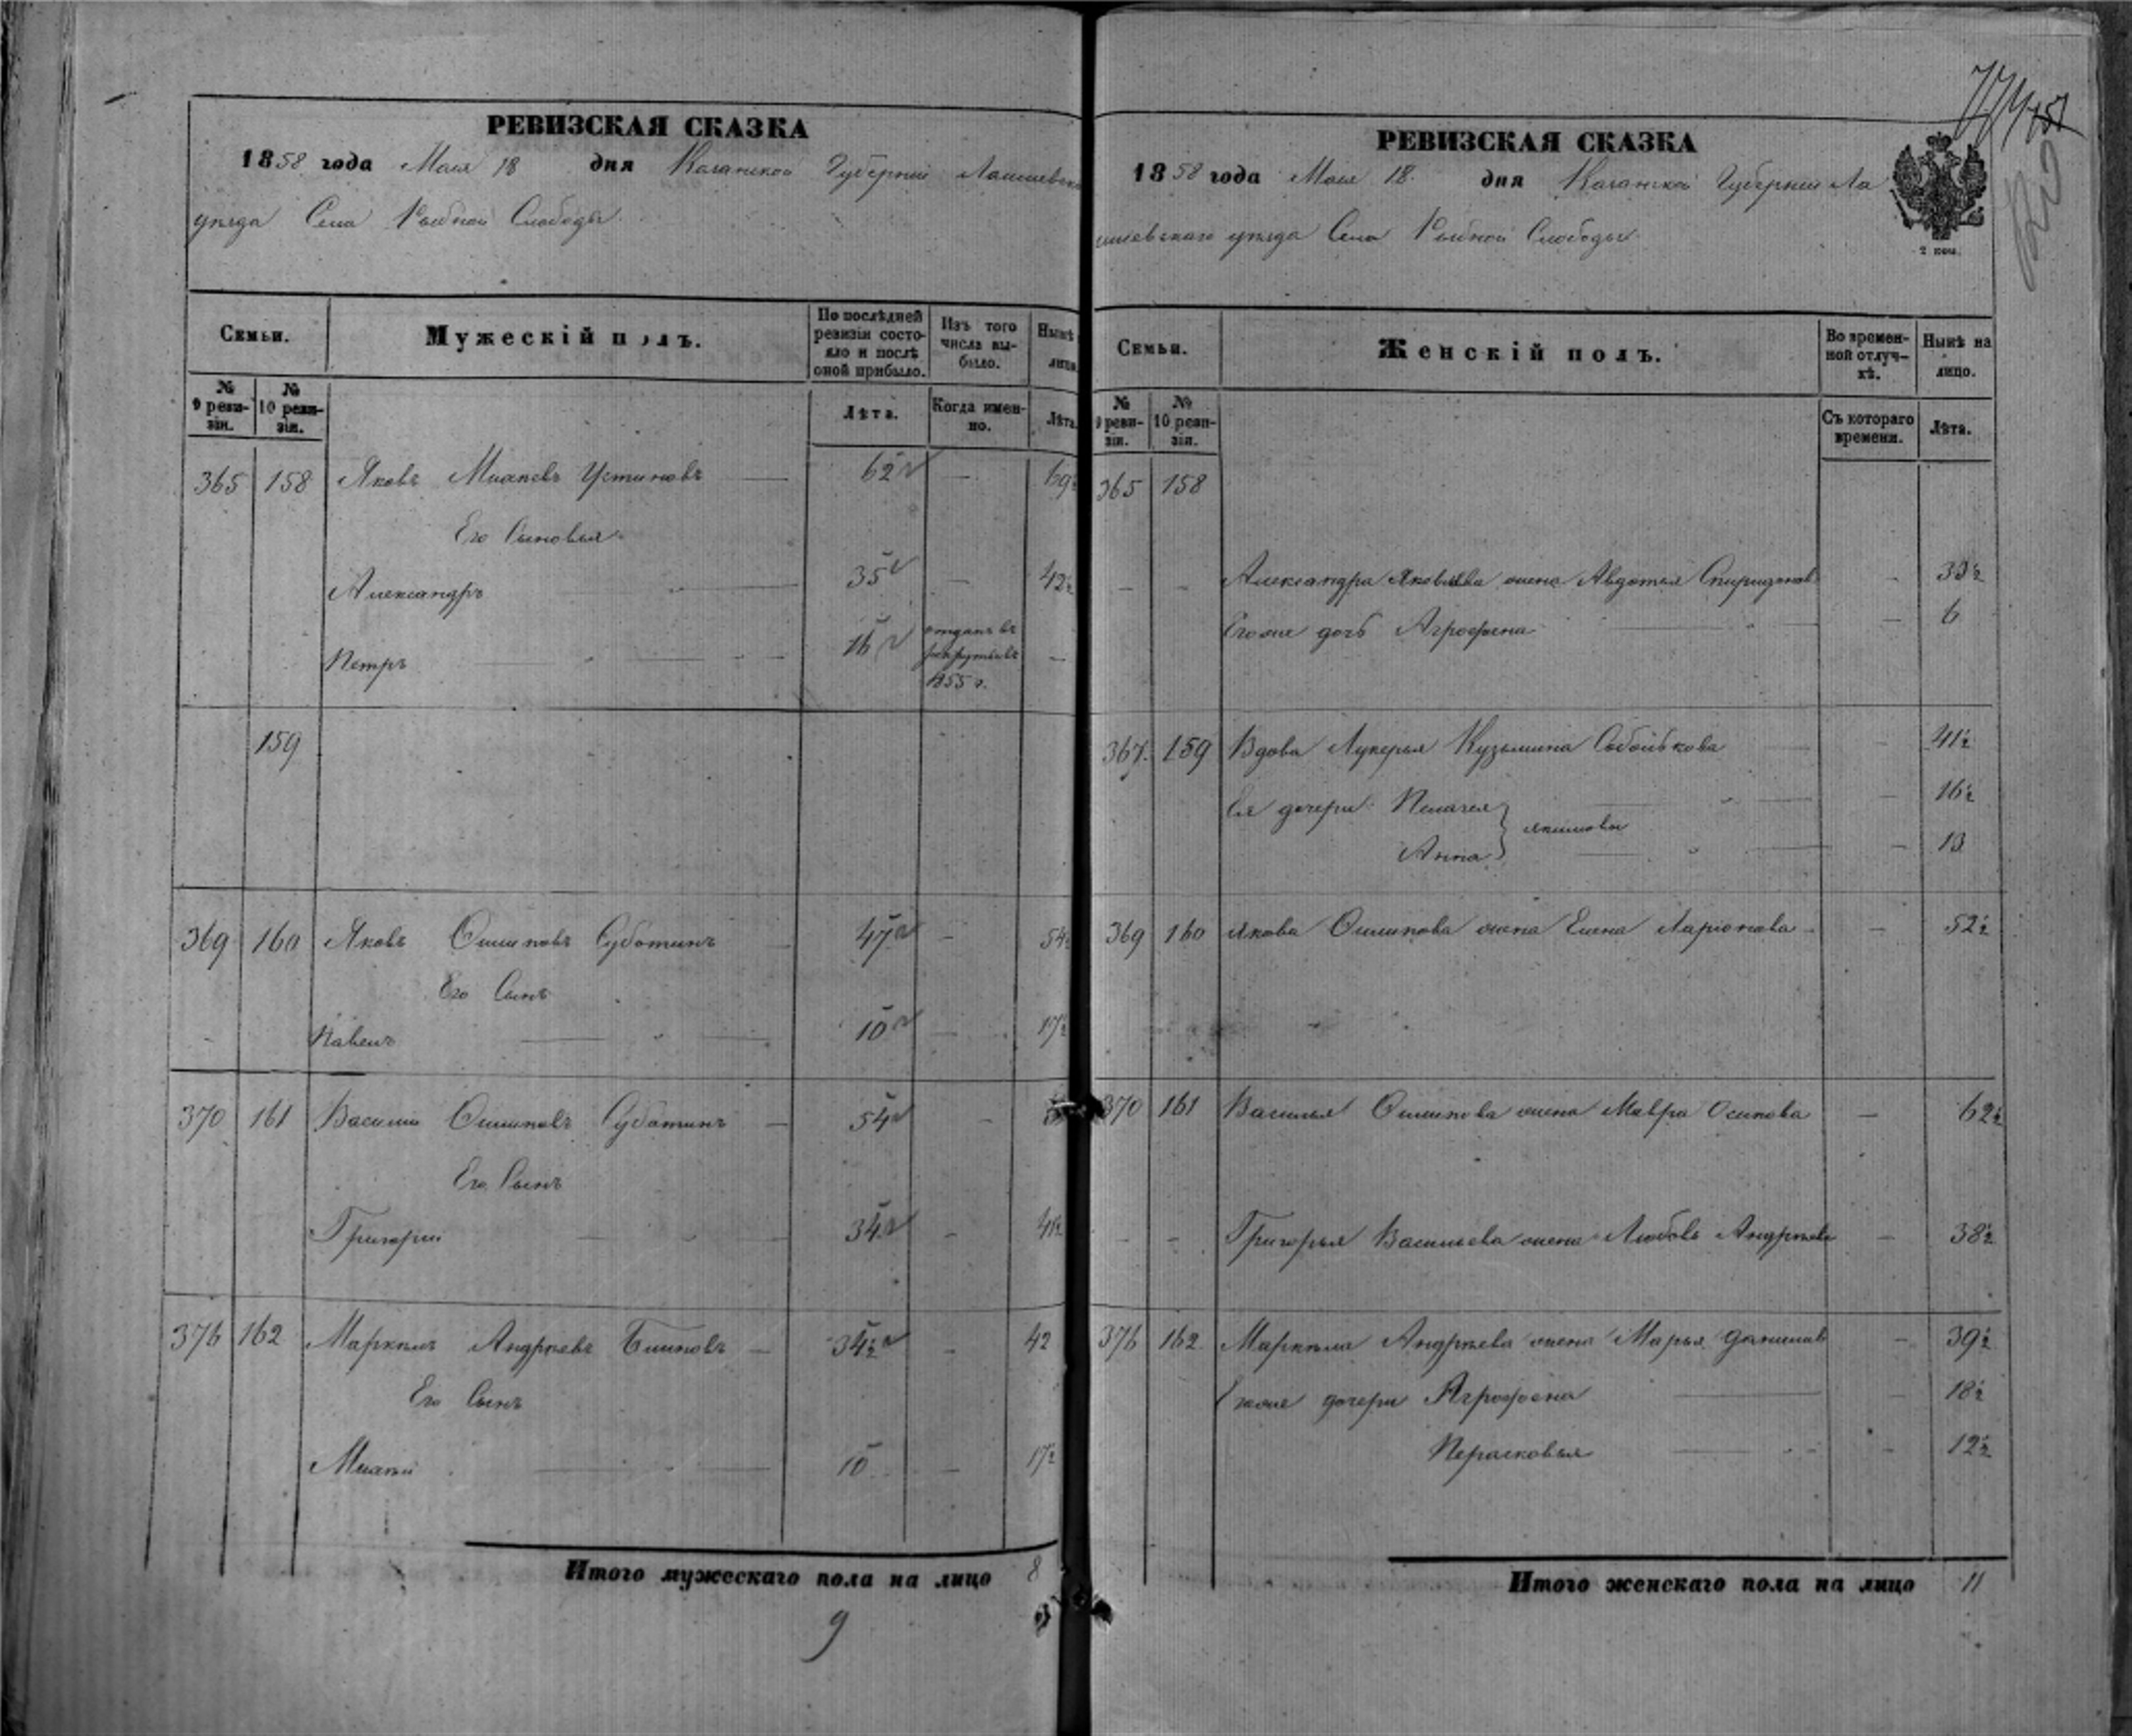 РЕВИЗСКАЯ СКАЗКА
1858 года Мая 18 дня Казанской Губерніи Лаишевска
уѣзда Села Рыбной Слободы
Семьи.
Мужескій полъ.
По послѣдней ревизіи состояло и послѣ оной прибыло.
Изъ того числа выбыло.
Нынѣ лицо
№ 9 ревизіи.
№ 10 ревизіи.
Лѣта.
Когда именно.
Лѣта.
365 158 Яковъ Михѣевъ Устиновъ — 62 — 69½
Его Сыновья
Александръ 35 — 42½
Петръ 16 отданъ въ рекруты въ 1855 г. —
159
369 160 Яковъ Осиповъ Суботинъ — 47 — 54½
Его Сынъ
Павелъ 10 — 17½
370 161 Василій Осиповъ Суботинъ — 54 —
Его Сынъ
Григорій 34 — 41½
376 162 Маркелъ Андрѣевъ — 34½ — 42
Его Сынъ
Михѣй 10 — 17½
Итого мужескаго пола на лицо 8
9
РЕВИЗСКАЯ СКАЗКА
1858 года Мая 18 дня Казанской Губерніи Ла
ишевскаго уѣзда Села Рыбной Слободы
2 коп.
774
151
Семьи.
Женскій полъ.
Во временной отлучкѣ.
Нынѣ на лицо.
№ 9 ревизіи.
№ 10 ревизіи.
Съ котораго времени.
Лѣта.
365 158
— — Александра Яковлева жена Авдотья Спиридонов —
Егоже дочь Агрофена — 6
367 159 Вдова Лукерья Кузьмина — 41½
Ея дочери Пелагея — 16½
Анна } якимовы — 13
369 160 Якова Осипова жена Елена Ларіонова — 52½
370 161 Василья Осипова жена Мавра Осипова — 62½
— — Григорья Васильева жена Любовь Андрѣева — 38½
376 162 Маркела Андрѣева жена Марья Данилов — 39½
Егоже дочери Агрофена — 18½
Перасковья — 12½
Итого женскаго пола на лицо 11